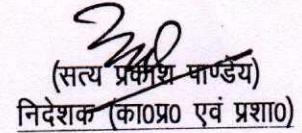 (सत्य प्रकाश पाण्डेय)
निदेशक (का0प्र0 एवं प्रशा0)